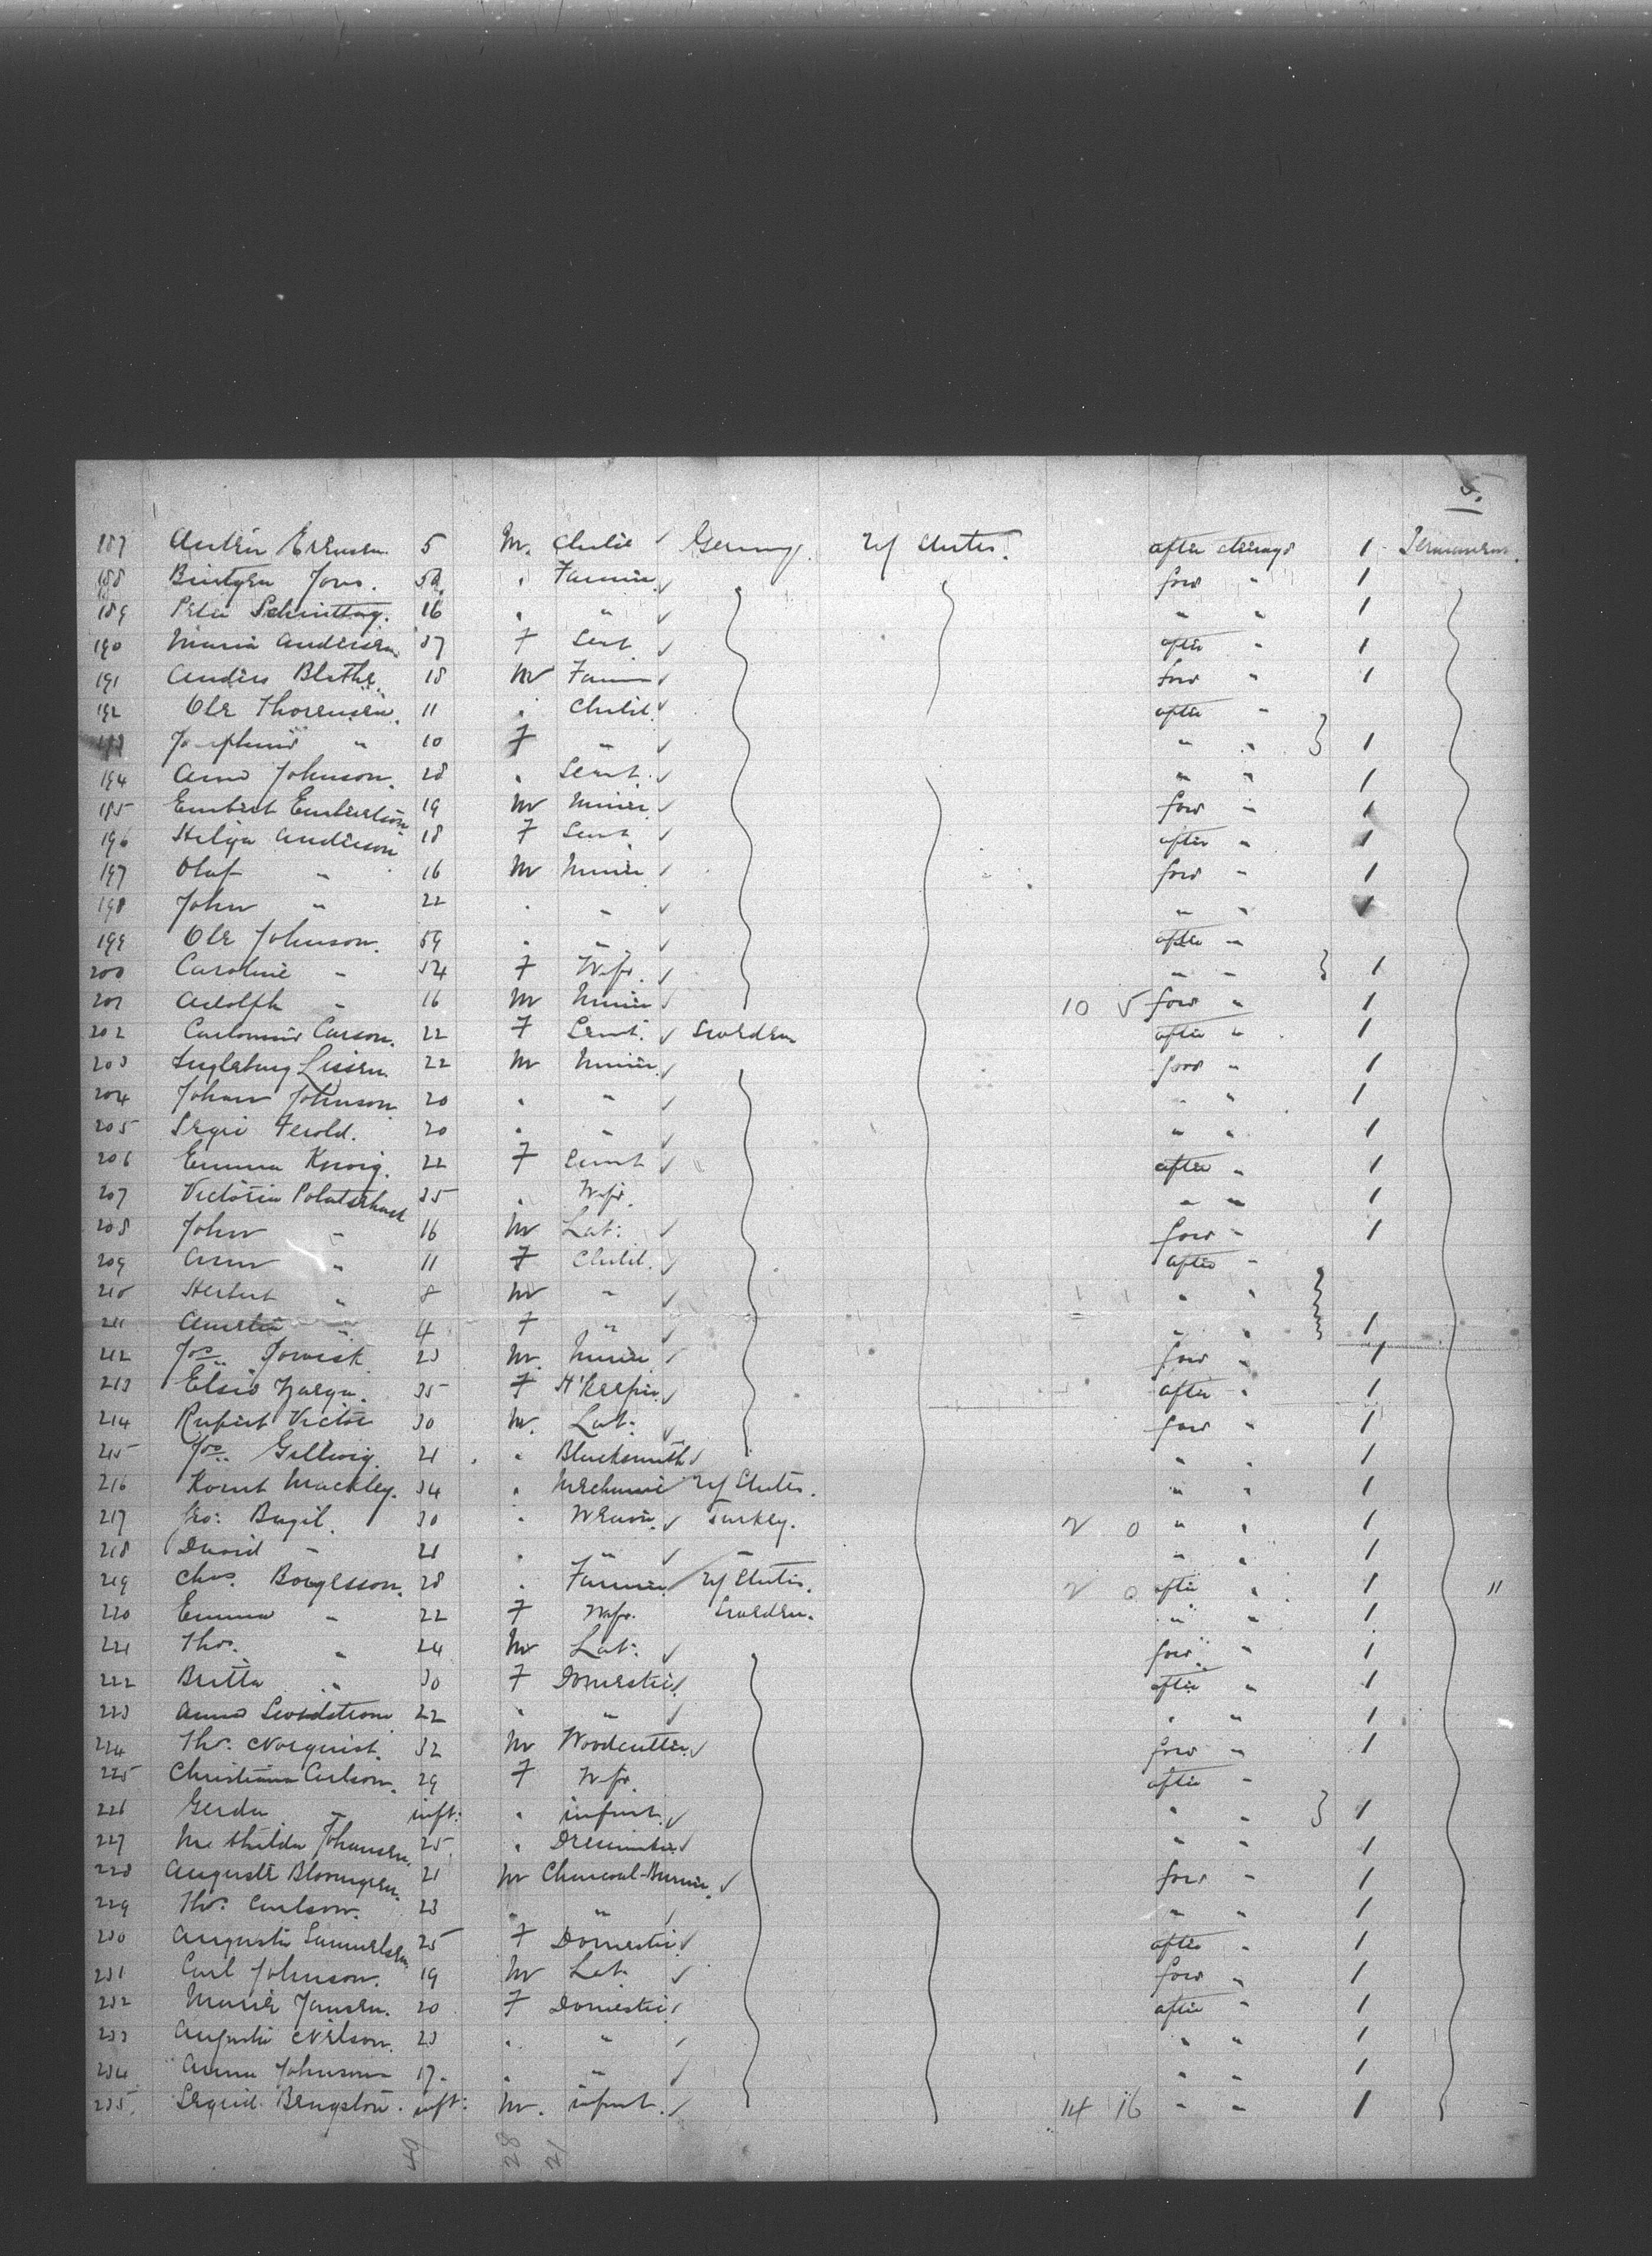 5.
187 5 M. Child Germy U/ States. after 1
188 Jons. " Farmer ✓ forw " 1
189 Peter 16 " " ✓ " " 1
190 Maria Andersen 37 F Servt ✓ after " 1
191 Anders Blathe 18 M Farmer ✓ forw " 1
192 Ole Thorensen. 11 " Child ✓ after "
193 Josephine " 10 F " ✓ " " } 1
194 Anna Johnson. 28 " Servt. ✓ " " 1
195 Embert Embertson 19 M Miner ✓ forw " 1
196 Helga Anderson 18 F Servt after " 1
197 Olaf " 16 M Miner ✓ forw " 1
198 John " 22 " " ✓ " " 1
199 Ole Johnson. 59 " " ✓ after "
200 Caroline " 54 F Wife. ✓ " " } 1
201 Adolph " 16 M Miner ✓ 10 5 forw " 1
202 Carson. 22 F Servt. ✓ Sweden after " 1
203 22 M Miner. ✓ forw " 1
204 Johan Johnson 20 " " ✓ " " 1
205 20 " " ✓ " " 1
206 Emma 22 F Servt ✓ after " 1
207 Victoria 35 " Wife. " " 1
208 John " 16 M Lab: ✓ forw " 1
209 Ann " 11 F Child. ✓ after "
210 Herbert " 8 M " ✓ " "
211 " 4 F " ✓ " " } 1
212 Jos. 23 M. Miner ✓ forw " 1
213 Elsie 35 F H'Keeper ✓ after " 1
214 Rupert Victor 30 M. Lab: ✓ forw " 1
215 Jos. 21 " Blacksmith ✓ " " 1
216 Mackley. 34 " Mechanic U/ States. " " 1
217 30 " Weaver. ✓ Turkey. 2 0 " " 1
218 David " 21 " " ✓ " " " 1
219 Chas. 28 " Farmer U/ States. 2 0 after " 1 "
220 Emma " 22 F Wife. Sweden. " " 1
221 Thos. " 24 M Lab: ✓ forw " 1
222 Britta " 30 F Domestic ✓ after " 1
223 Anna 22 " " ✓ " " 1
224 Thos. Norquist. 32 M Woodcutter. ✓ forw " 1
225 Christiana Carlson. 29 F Wife. after "
226 Gerda " inft: " infant. ✓ " " } 1
227 Mathilda Johansen. 25. " Dressmaker ✓ " " 1
228 Auguste Bloomgren. 21 M Charcoal-Burner. ✓ forw " 1
229 Thos. Carlson. 23 " " ✓ " " 1
230 Augusta Samuelsen 25 F Domestic ✓ after " 1
231 Carl Johnson. 19 M Lab ✓ forw " 1
232 Marie Jansen. 20 F Domestic ✓ after " 1
233 Augusta Nelson. 23 " " ✓ " " 1
234 Anna Johnson 17. " " ✓ " " 1
235. Bengston. inft: M. infant. ✓ 14 16 " " 1
28 21